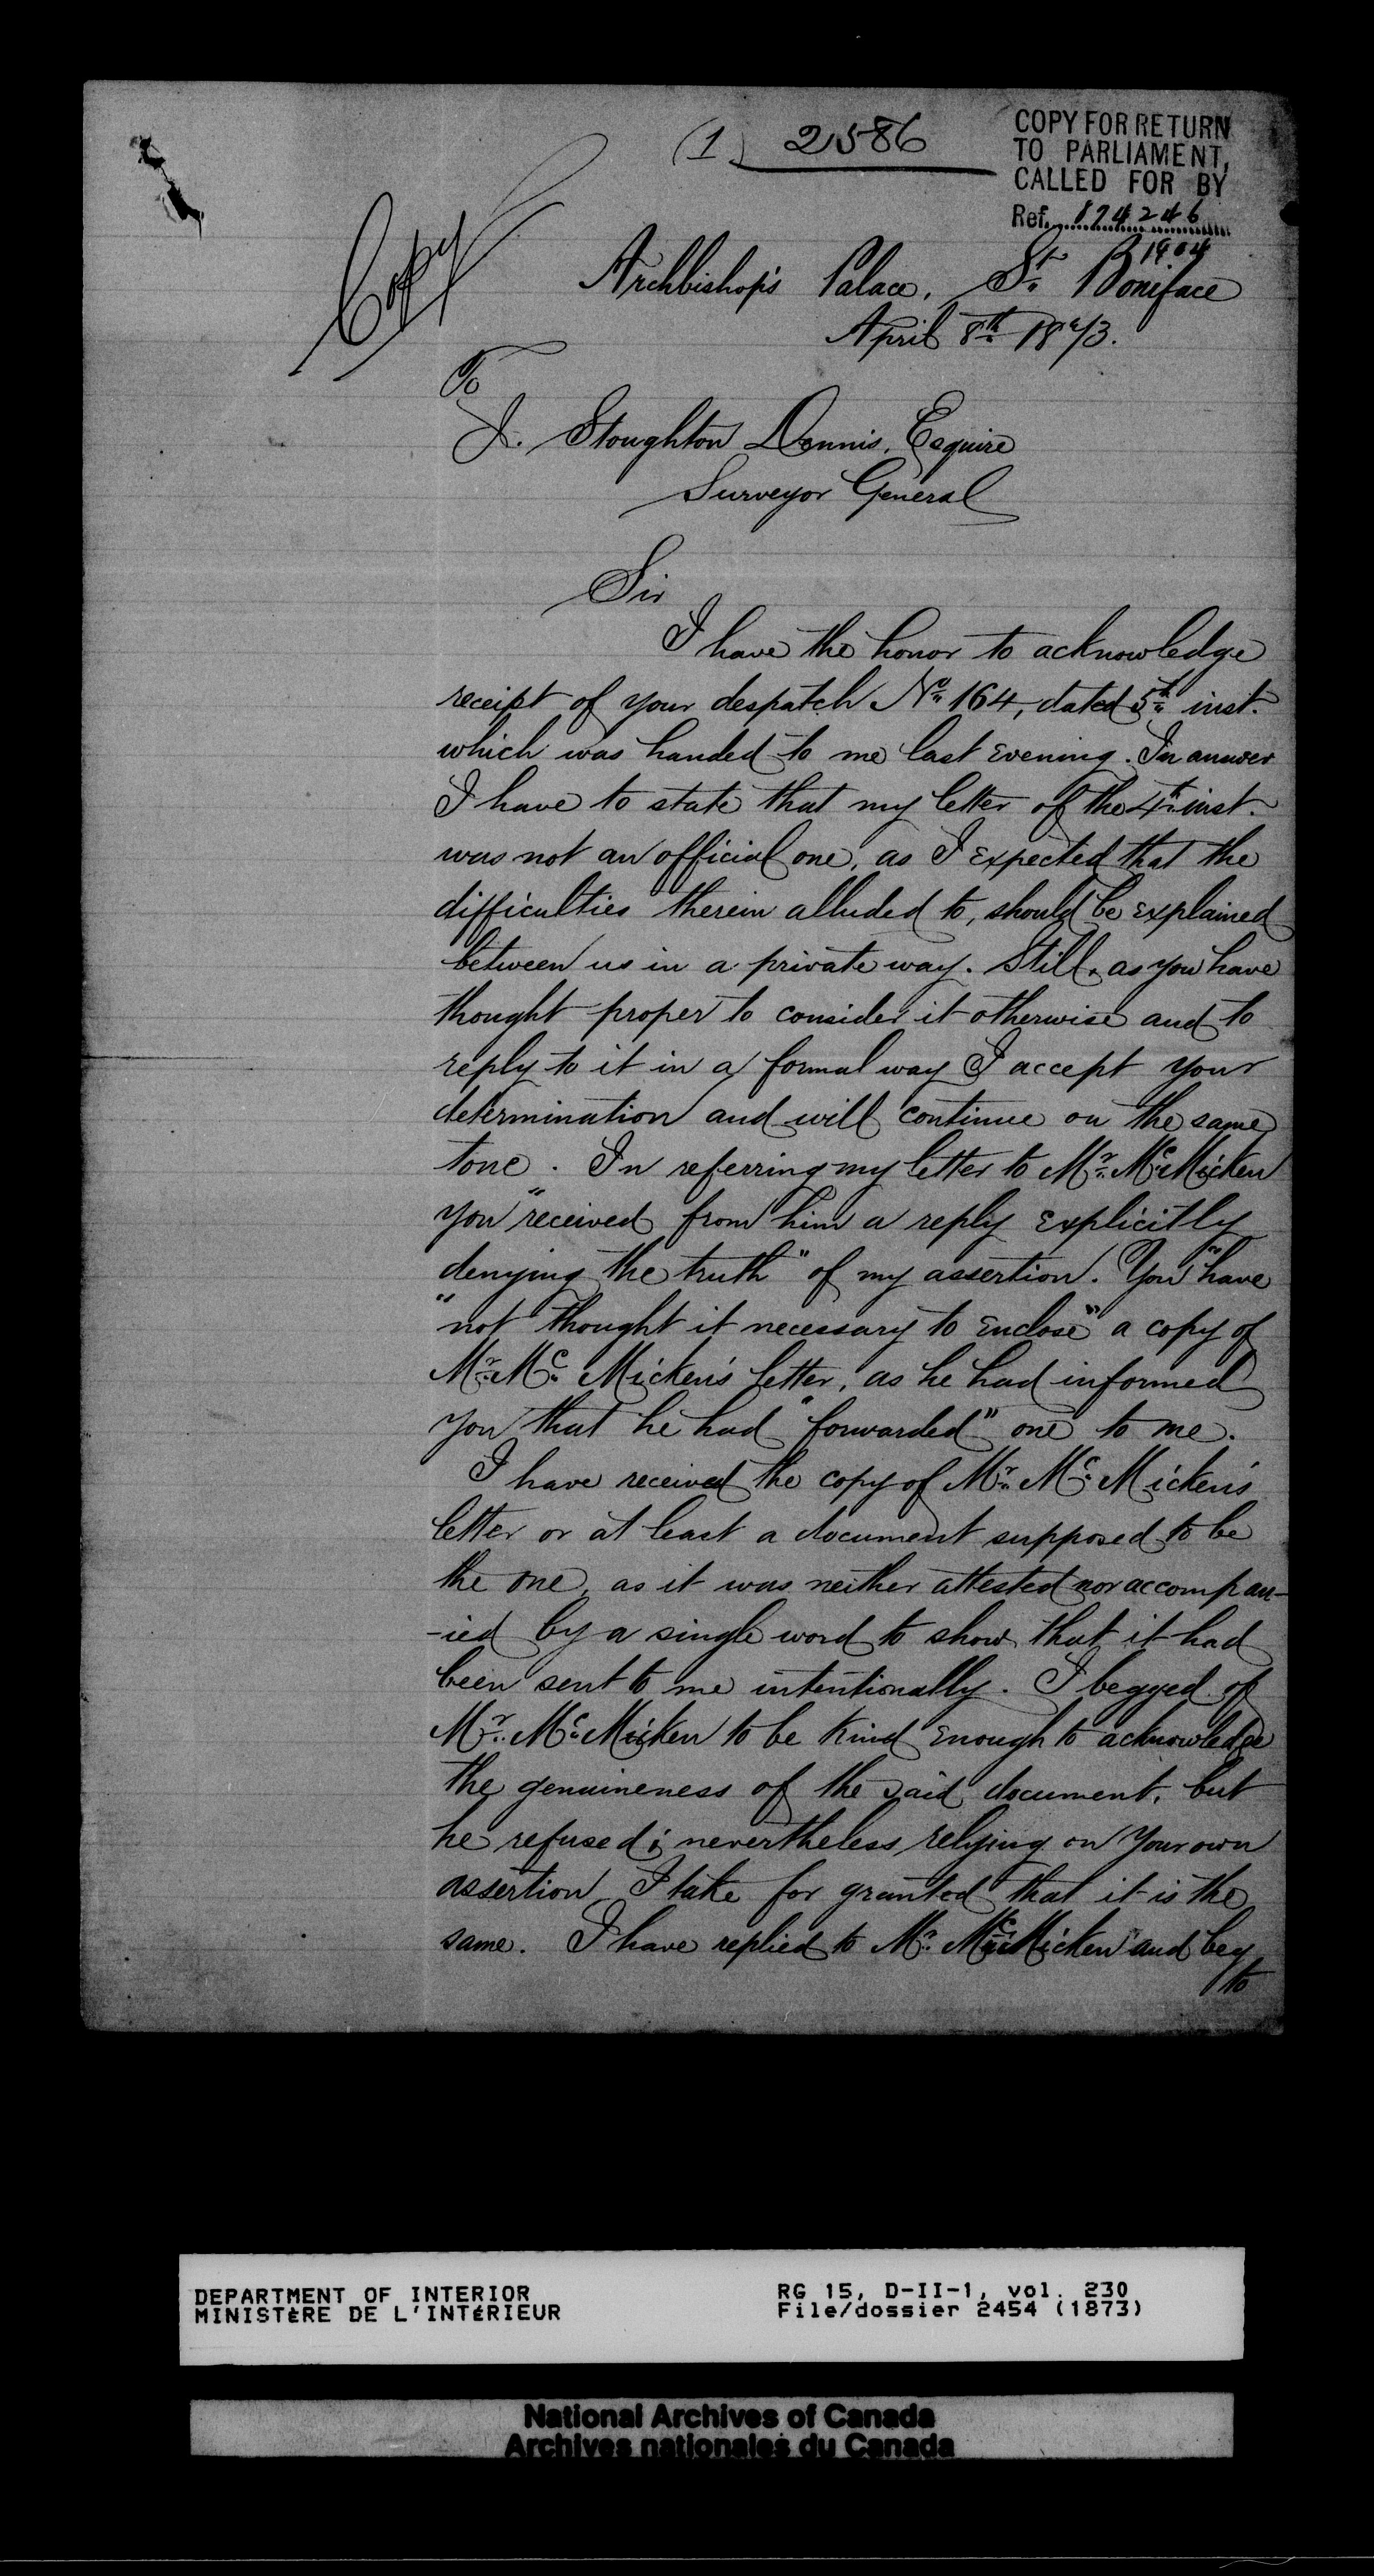 (1) 2586
COPY FOR RETURN
TO PARLIAMENT,
CALLED FOR BY
Ref. 874246
1904
Copy
Archbishop's Palace, St. Boniface
April 8th 1873.
To
J. Stoughton Dennis, Esquire
Surveyor General
Sir
I have the honor to acknowledge
receipt of your despatch No. 164, dated 5th inst.
which was handed to me last Evening. In answer
I have to state that my letter of the 4th inst.
was not an official one, as I Expected that the
difficulties therein alluded to, should be Explained
between us in a private way. Still, as you have
thought proper to consider it otherwise and to
reply to it in a formal way I accept your
determination and will continue on the same
tone. In referring my letter to Mr. McMicken
you "received from him a reply Explicitly
denying the truth" of my assertion. You "have
"not thought it necessary to Enclose" a copy of
Mr. Mc. Micken's letter, as he had informed
you that he had "forwarded" one to me.
I have received the copy of Mr. Mc. Micken's
letter or at least a document supposed to be
the one, as it was neither attested nor accompan-
-ied by a single word to show that it had
been sent to me intentionally. I begged of
Mr. McMicken to be Kind Enough to acknowledge
the genuineness of the said document, but
he refused; nevertheless relying on Your own
assertion I take for granted that it is the
same. I have replied to Mr. McMicken and beg
to
DEPARTMENT OF INTERIOR
MINISTÈRE DE L'INTÉRIEUR
RG 15, D-II-1, vol. 230
File/dossier 2454 (1873)
National Archives of Canada
Archives nationales du Canada